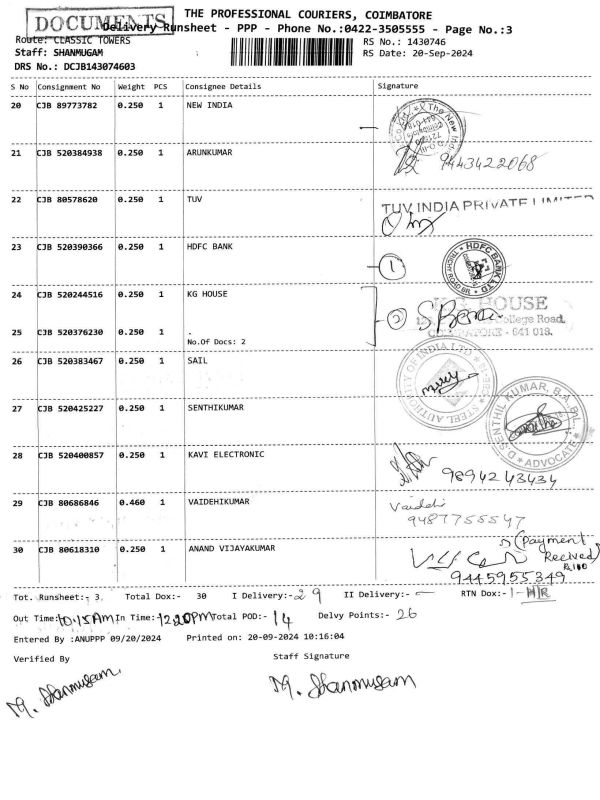 DOCUMENTS
THE PROFESSIONAL COURIERS, COIMBATORE
Delivery Runsheet - PPP - Phone No.:0422-3505555 - Page No.:3
Route: CLASSIC TOWERS
RS No.: 1430746
Staff: SHANMUGAM
RS Date: 20-Sep-2024
DRS No.: DCJB143074603
S No Consignment No Weight PCS Consignee Details Signature
20 CJB 89773782 0.250 1 NEW INDIA
21 CJB 520384938 0.250 1 ARUNKUMAR
9443422068
22 CJB 80578620 0.250 1 TUV
TUV INDIA PRIVATE LIMITED
23 CJB 520390366 0.250 1 HDFC BANK
1
HDFC BANK LTD
24 CJB 520244516 0.250 1 KG HOUSE
KG HOUSE
2
College Road,
COIMBATORE - 641 018.
25 CJB 520376230 0.250 1 .
No.Of Docs: 2
26 CJB 520383467 0.250 1 SAIL
STEEL AUTHORITY OF INDIA LTD
27 CJB 520425227 0.250 1 SENTHIKUMAR
D. SENTHIL KUMAR, B.A.,B.L., ADVOCATE
28 CJB 520400857 0.250 1 KAVI ELECTRONIC
9894243434
29 CJB 80686846 0.460 1 VAIDEHIKUMAR
Vaidehi
9487755547
30 CJB 80618310 0.250 1 ANAND VIJAYAKUMAR
(Payment
Recived)
9445955349
Tot. Runsheet:- 3 Total Dox:- 30 I Delivery:- 29 II Delivery:- - RTN Dox:- 1-
Out Time:10.15AM In Time:12.20PM Total POD:- 14 Delvy Points:- 26
Entered By :ANUPPP 09/20/2024 Printed on: 20-09-2024 10:16:04
Verified By Staff Signature
M. Shanmugam
M. Shanmugam